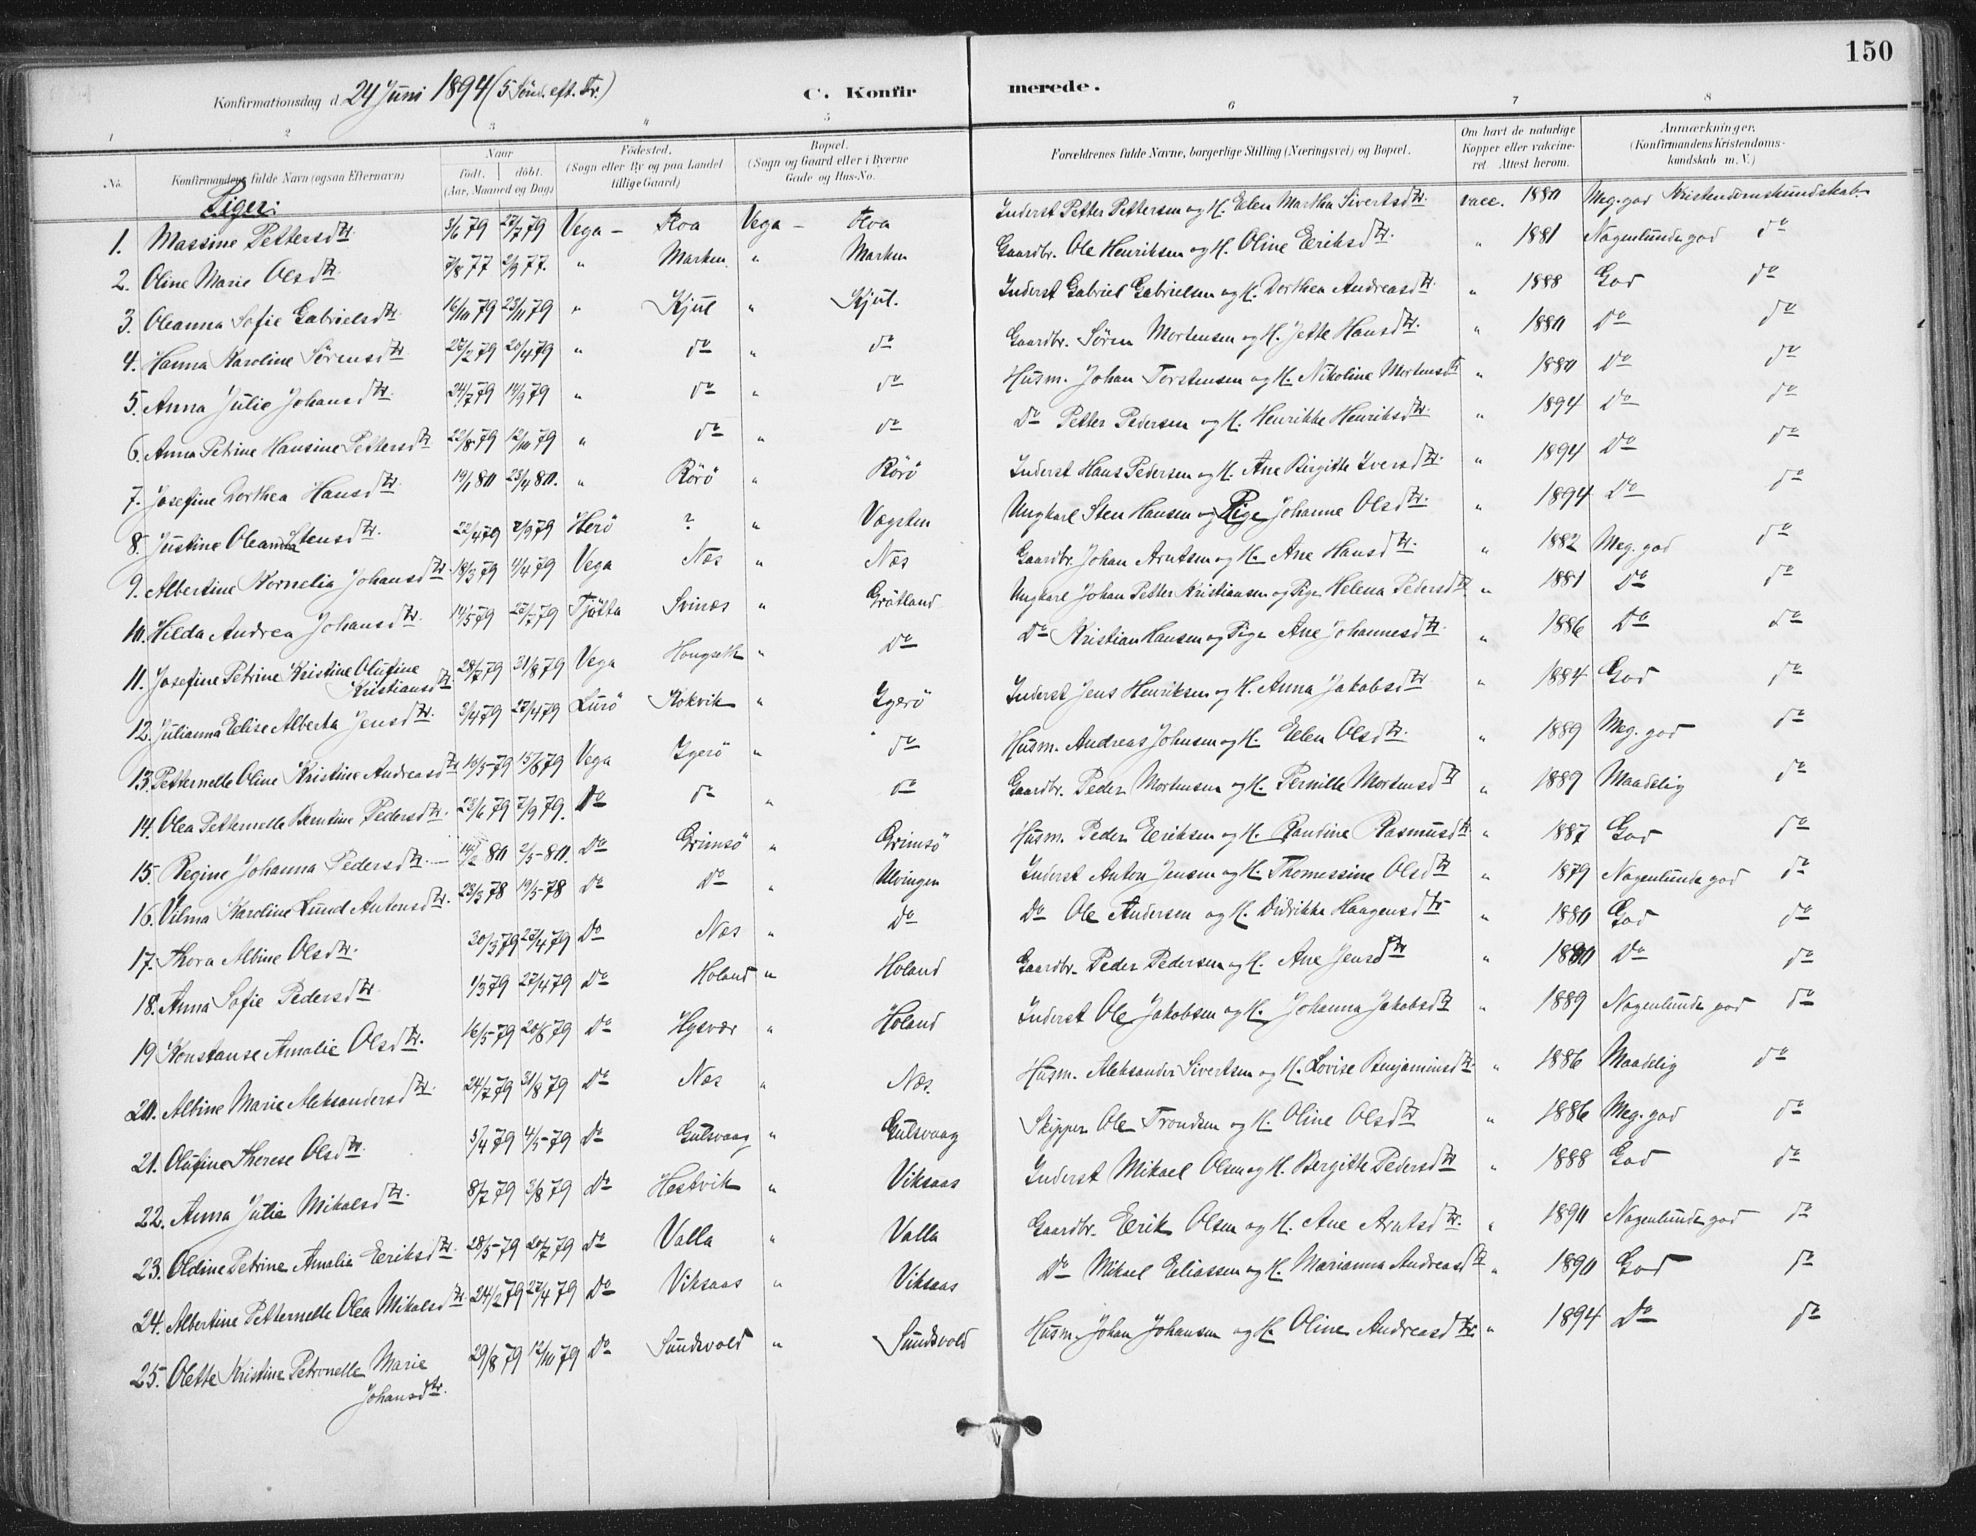 150
Konfirmationsdag d. 24 Juni 1894 (5 Sönd. eft. Tr.) C. Konfirmerede.
1 2 3 4 5 6 7 8
No. Konfirmandens fulde Navn (ogsaa Efternavn) Naar Födt. döbt. (Aar, Maaned og Dag) Födested. (Sogn eller By og paa Landet tillige Gaard) Bopæl. (Sogn og Gaard eller i Byerne Gade og Hus-No. Forældrenes fulde Navne, borgerlige Stilling (Næringsvei) og Bopæl. Om havt de naturlige Kopper eller vaccineret. Attest herom. Anmærkninger. (Konfirmandens Kristendomskundskab m. V.)
Piger:
1. Massine Pettersdtr. 3/6 79 27/7 79 Vega – Floa Vega – Floa Inderst Petter Pettersen og H. Elen Martha Sivertsdtr. vacc. 1880 Meg. god Kristendomskundskab.
2. Oline Marie Olsdtr. 7/8 77 2/9 77. " Marken " Marken Gaardbr. Ole Henriksen og H. Oline Eeriksdtr. " 1881 Nogenlunde god do
3. Oleanna Sofie Gabrielsdtr. 16/10 79 23/11 79 " Kjul " Kjul. Inderst Gabriel Gabrielsen og H. Dorthea Andreasdtr. " 1888 God do
4. Hanna Karoline Sörensdtr 27/2 79 20/4 79 " do " do Gaardbr. Sören Mortensen og H. Jette Hansdtr. " 1880 Do do
5. Anna Julie Johansdtr. 24/7 79 14/9 79 " do " do Husm. Johan Torstensen og H. Nikoline Mortensdtr " 1880 Do do
6. Anna Petrine Hansine Pettersdtr 22/8 79 12/10 79 " do " do Do Petter Pedersen og H. Henrikke Henriksdtr. " 1894 Do do
7. Josefine Dorthea Hansdtr. 19/1 80 23/4 80. " Rörö " Rörö Inderst Hans Pedersen og H. Ane Birgitte Iversdtr. " 1894 Do do
8. Justine Oleanna Stensdtr. 22/4 79 7/9 79 Herö ? " Vægsten Ungkarl Sten Hansen og Pige Johanne Olsdtr. " 1894 Do do
9. Albertine Kornelia Johansdtr. 18/3 79 11/4 79 Vega Næs " Næs Gaardbr. Johan Arntsen og H. Ane Hansdtr. " 1882 Meg. god do
10. Hilda Andrea Johansdtr. 14/5 79 27/7 79 Tjötta Svinæs " Grötland Ungkarl Johan Petter Kristiansen og Pige Helena Pedersdtr " 1881 Do do
11. Josefine Petrine Kristine Olufine Kristiansdtr. 28/7 79 31/8 79 Vega Hongseth " Do Do Kristian Hansen og Pige Ane Johannesdtr. " 1886 Do do
12. Julianna Eelise Alberta Jensdtr. 3/4 79 27/4 79 Lurö Kokvik " Ygerö Inderst Jens Henriksen og H. Anna Jakobsdtr " 1884 God do
13. Petternelle Oline Kristine Andreasdtr 10/5 79 15/6 79 Vega Ygerö " do Husm. Andreas Johnsen og H. Eelen Olsdtr. " 1889 Meg. god do
14. Olea Petternelle Berntine Pedersdtr. 23/6 79 7/9 79. Do do " do Gaardbr. Peder Mortensen og H. Pernille Mortensdtr " 1889 Maadelig do
15. Regine Johanna Pedersdtr. 14/2 80 2/5 80. Do Grimsö " Grimsö Husm. Peder Eeriksen og H. Randine Rasmusdtr " 1887 God do
16. Vilma Karoline Lund Antonsdtr. 23/3 78 19/5 78 Do Do " Ulvingen Inderst Anton Jensen og H. Thomessine Olsdtr " 1879 Nogenlunde god do
17. Thora Albine Olsdtr. 30/3 79 27/4 79 Do Næs " Do Do Ole Andersen og H. Didrikke Haagensdtr " 1880 God do
18. Anna Sofie Pedersdtr. 1/3 79 27/4 79 Do Holand " Holand Gaardbr. Peder Pedersen og H. Ane Jensdtr " 1880 Do do
19 Konstanse Amalie Olsdtr. 16/5 79 20/6 79 Do Hysvær " Holand Inderst Ole Jakobsen og H. Johanna Jakobsdtr " 1889 Nogenlunde god do
20. Albine Marie Aleksandersdtr. 24/7 79 31/8 79 Do Næs " Næs. Husm. Aleksander Sivertsen og H. Lovise Benjaminsdtr. " 1886 Maadelig do
21. Olufine Therese Olsdtr. 5/4 79 4/5 79 Do Gulsvaag " Gulsvaag Skipper Ole Trondsen og H. Oline Olsdtr " 1886 Meg. god do
22. Anna Julie Mikalsdtr. 8/7 79 3/8 79 Do Hestvik " Viksaas Inderst Mikael Olsen og H. Bergitte Pedersdtr " 1888 God do
23. Oldine Petrine Amalie Eeriksdtr. 28/5 79 20/7 79 Do Valla " Valla Gaardbr. Eerik Olsen og H. Ane Arntsdtr. " 1890 Nogenlunde god do
24. Albertine Petternelle Olea Mikalsdtr. 24/2 79 27/4 79 Do Viksaas " Viksaas Do Mikael Eeliassen og H. Marianna Andreasdtr " 1890 God do
25. Olette Kristine Petronelle Marie Johansdtr. 29/8 79 12/10 79 Do Sundsvold " Sundsvold Husm. Johan Johansen og H. Oline Andreasdtr. " 1894 Do do